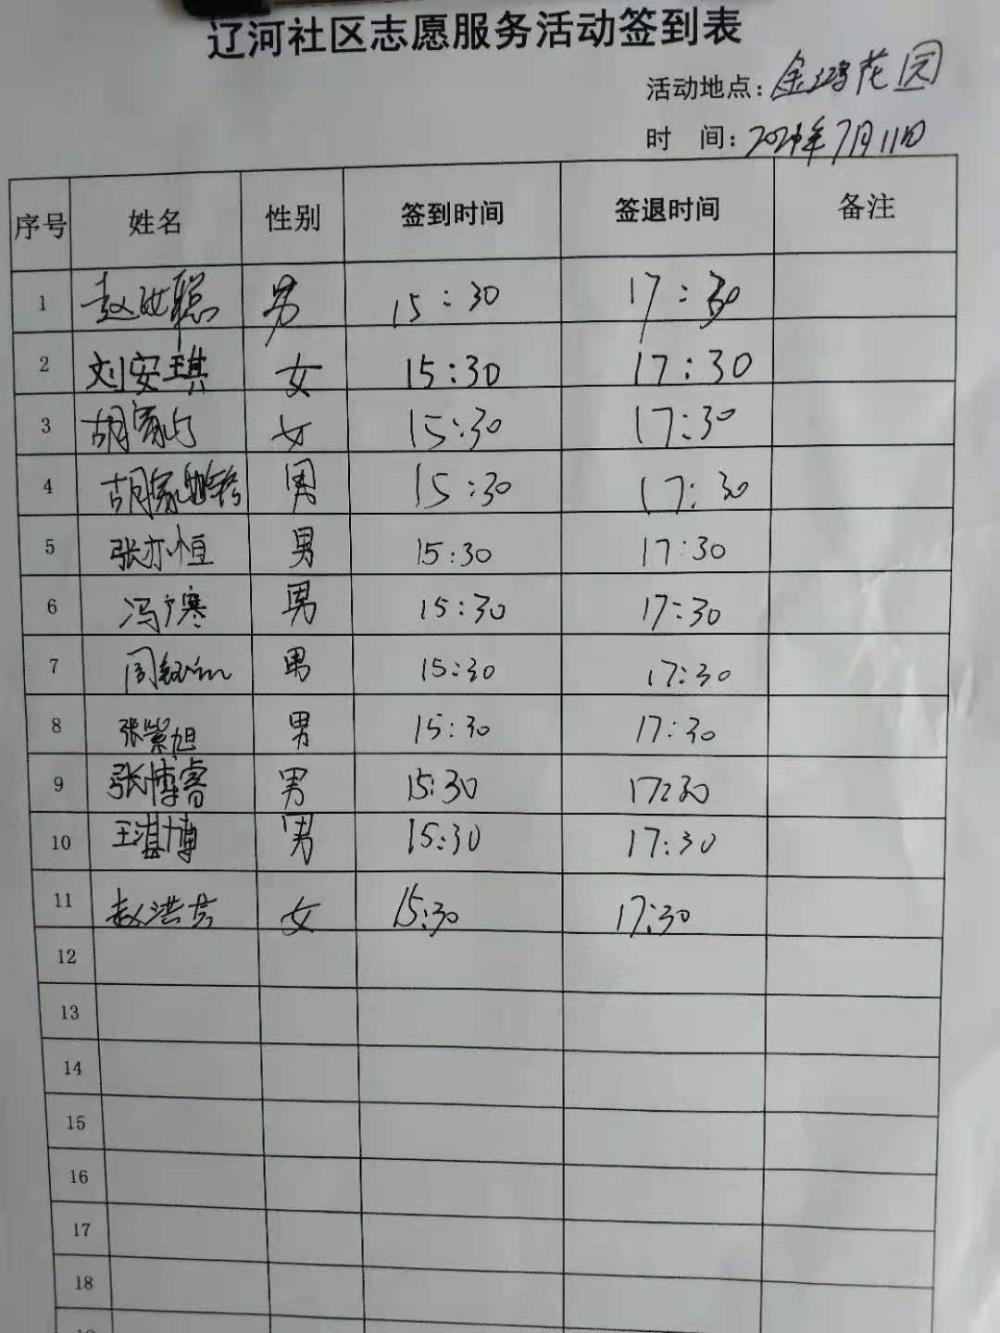 辽河社区志愿服务活动签到表
活动地点：金鸿花园
时 间：2021年7月11日
序号 姓名 性别 签到时间 签退时间 备注
1 赵 聪 男 15:30 17:30
2 刘安琪 女 15:30 17:30
3 胡家 女 15:30 17:30
4 胡家 男 15:30 17:30
5 张亦恒 男 15:30 17:30
6 冯广寒 男 15:30 17:30
7 周 男 15:30 17:30
8 张紫旭 男 15:30 17:30
9 张博睿 男 15:30 17:30
10 王湛博 男 15:30 17:30
11 赵洪芳 女 15:30 17:30
12
13
14
15
16
17
18